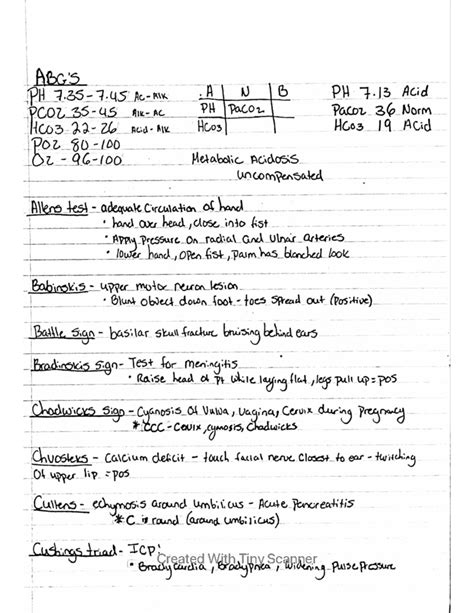 ABG'S
PH 7.35-7.45 AC-AlK
PCO2 35-45 AlK-AC
HCO3 22-26 Acid-AlK
PO2 80-100
O2 - 96-100
A N B
PH PaCO2
HCO3
Metabolic Acidosis
uncompensated
PH 7.13 Acid
PaCO2 36 Norm
HCO3 19 Acid
Allens test - adequate Circulation of hand
• hand over head, close into fist
• Apply Pressure on radial and Ulnar arteries
• lower hand, open fist, palm has blanched look
Babinskis - upper motor neuron lesion
• Blunt object down foot - toes spread out (positive)
Battle Sign - basilar skull fracture bruising behind ears
Bradinskis sign - Test for meningitis
• Raise head of Pt while laying flat, legs pull up = pos
Chadwicks sign - Cyanosis of Vulva, Vagina, Cervix during Pregnancy
* CCC - Cervix, cynosis, Chadwicks
Chvosteks - Calcium deficit - touch facial nerve closest to ear - twitching
of upper lip = pos
Cullens - echymosis around umbilicus - Acute Pancreatitis
* C is round (around umbilicus)
Cushings triad - ICP:
• Bradycardia, Bradypnea, Widening Pulse Pressure
Created With Tiny Scanner